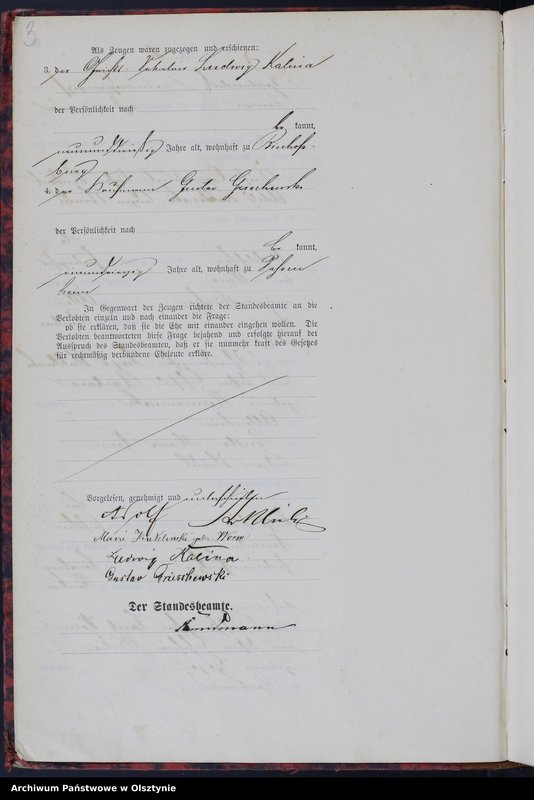 3
Als Zeugen waren zugezogen und erschienen:
3. der Gerichts- Ludwig Kalina
der Persönlichkeit nach
be kannt,
neununddreißig Jahre alt, wohnhaft zu Bischofs-
burg
4. der Kaufmann Gustav Grieschewski
der Persönlichkeit nach
be kannt,
Jahre alt, wohnhaft zu
heim
In Gegenwart der Zeugen richtete der Standesbeamte an die
Verlobten einzeln und nach einander die Frage:
ob sie erklären, daß sie die Ehe mit einander eingehen wollen. Die
Verlobten beantworteten diese Frage bejahend und erfolgte hierauf der
Ausspruch des Standesbeamten, daß er sie nunmehr kraft des Gesetzes
für rechtmäßig verbundene Eheleute erkläre.
Vorgelesen, genehmigt und unterschrieben
Adolf
Marie Kuklinski geb. Worm
Ludwig Kalina
Gustav Grieschewski
Der Standesbeamte.
Archiwum Państwowe w Olsztynie